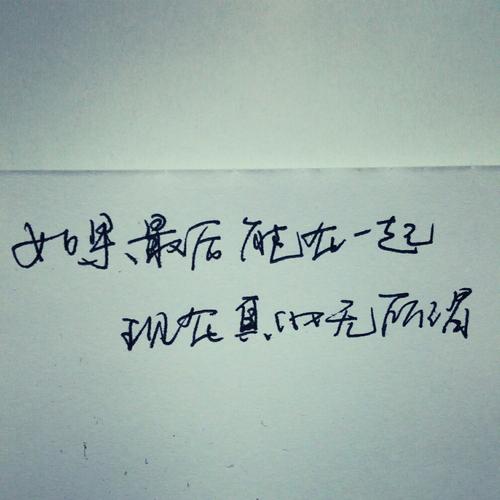 如果、最后能在一起
现在真的无所谓